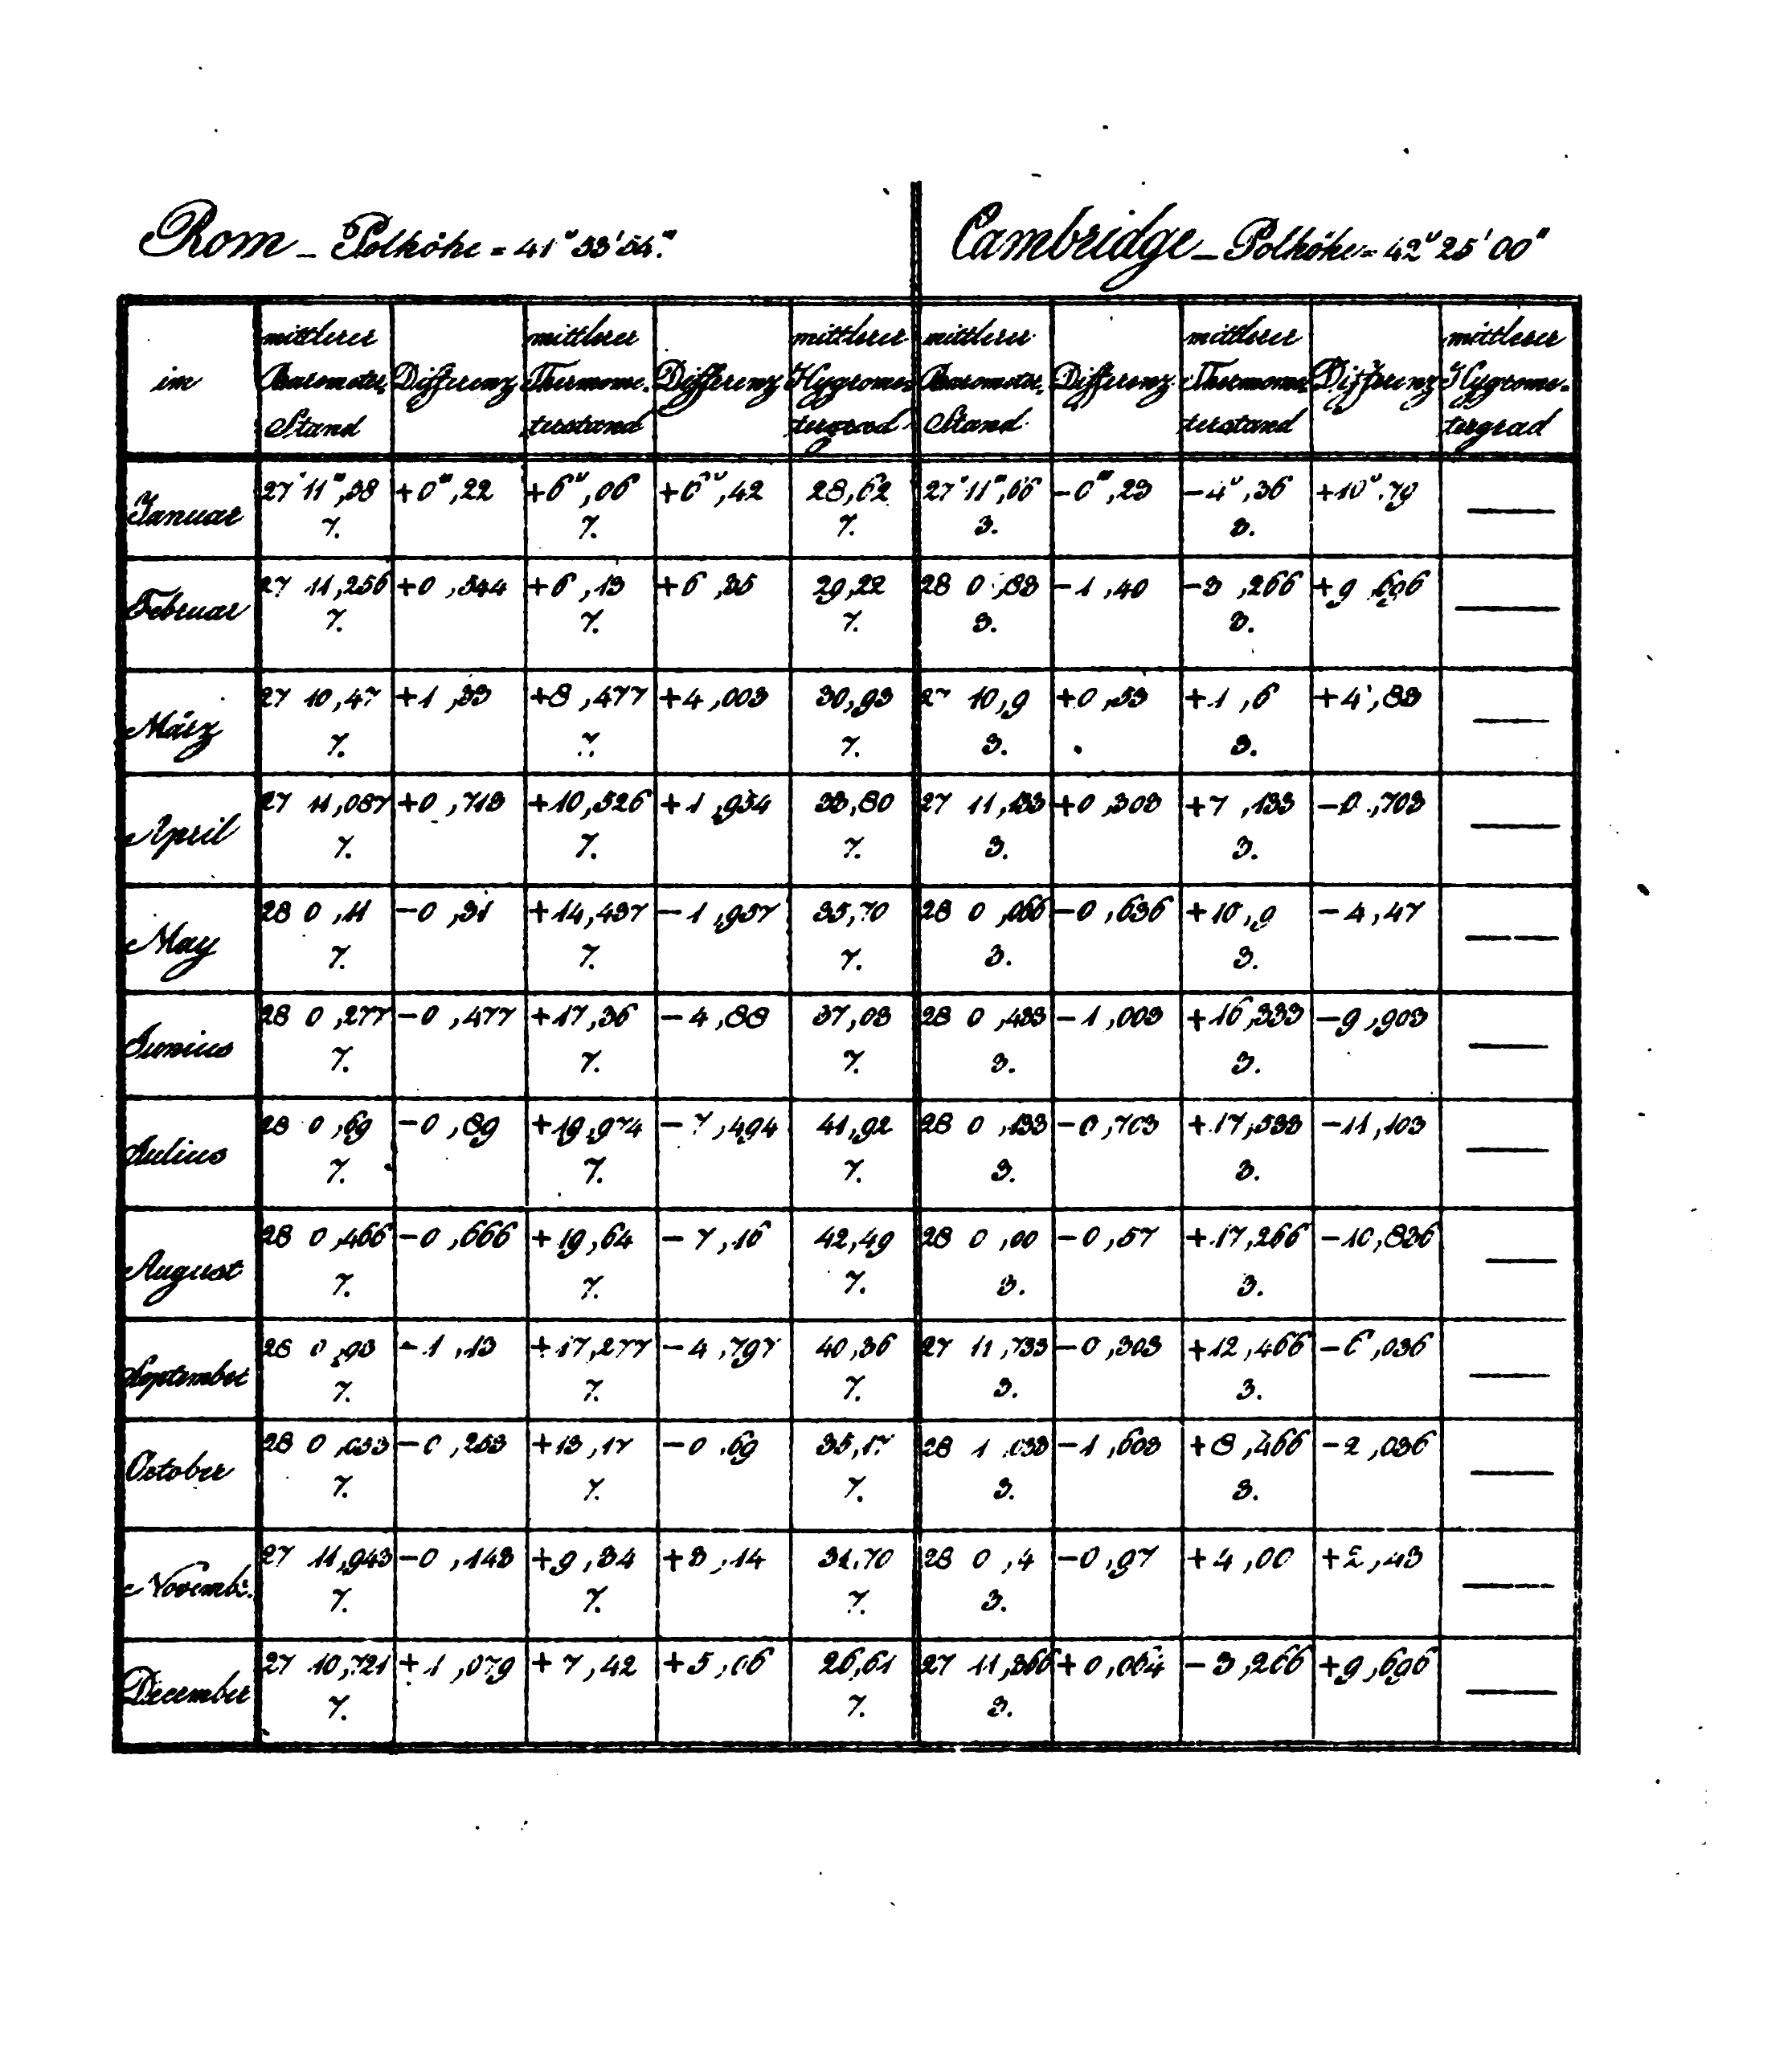 Rom – Polhöhe = 41° 53' 54."
Cambridge – Polhöhe = 42° 25' 00"
im | mittlerer Barometer-Stand | Differenz | mittlerer Thermome-terstand | Differenz | mittlerer Hygrome-tergrad | mittlerer Barometer-Stand | Differenz | mittlerer Thermome-terstand | Differenz | mittlerer Hygrome-tergrad
Januar | 27' 11",38 7. | +0"',22 | +6°,06 7. | +6°,42 | 28,62 7. | 27' 11",66 3. | –0"',23 | –4°,36 3. | +10°.79 | —
Februar | 27 11,256 7. | +0 ,344 | +6 ,13 7. | +6 ,35 | 29,22 7. | 28 0 ,83 3. | –1 ,40 | –3 ,266 3. | +9 ,696 | —
März | 27 10,47 7. | +1 ,33 | +8 ,477 7. | +4 ,003 | 30,93 7. | 27 10,9 3. | +0 ,53 | +1 ,6 3. | +4 ,83 | —
April | 27 11,087 7. | +0 ,713 | +10,526 7. | +1 ,954 | 33,80 7. | 27 11,133 3. | +0 ,303 | +7 ,133 3. | –0 ,703 | —
May | 28 0 ,11 7. | –0 ,31 | +14,437 7. | –1 ,957 | 35,70 7. | 28 0 ,066 3. | –0 ,636 | +10,9 3. | –4,47 | —
Junius | 28 0 ,277 7. | –0 ,477 | +17,36 7. | –4 ,88 | 37,03 7. | 28 0 ,433 3. | –1 ,003 | +16,333 3. | –9 ,903 | —
Julius | 28 0 ,69 7. | –0 ,89 | +19,974 7. | –7 ,494 | 41,92 7. | 28 0 ,133 3. | –0,703 | +17,533 3. | –11,103 | —
August | 28 0 ,466 7. | –0 ,666 | +19,64 7. | –7 ,16 | 42,49 7. | 28 0 ,00 3. | –0,57 | +17,266 3. | –10,836 | —
September | 28 0 ,93 7. | –1 ,13 | +17,277 7. | –4 ,797 | 40,36 7. | 27 11,733 3. | –0,303 | +12,466 3. | –6 ,036 | —
October | 28 0 ,053 7. | –0 ,253 | +13,17 7. | –0 ,69 | 35,17 7. | 28 1 ,033 3. | –1,603 | +8 ,466 3. | –2 ,036 | —
Novemb. | 27 11,943 7. | –0 ,143 | +9 ,34 7. | +3 ,14 | 31,70 7. | 28 0 ,4 3. | –0,97 | +4 ,00 | +2 ,43 | —
December | 27 10,721 7. | +1 ,079 | +7 ,42 | +5 ,06 | 26,61 7. | 27 11,366 3. | +0 ,064 | –3 ,266 | +9 ,696 | —